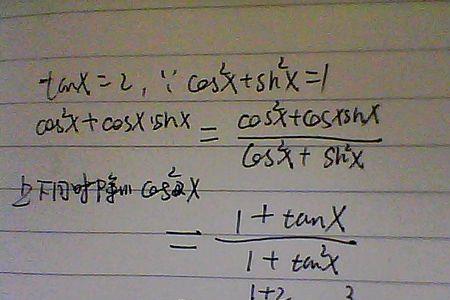 tanx=2, ∵ cos²x+sin²x=1
cos²x+cosx·sinx = (cos²x+cosxsinx)/(cos²x+sin²x)
上下同时除以 cos²x
= (1+tanx)/(1+tan²x)
1+2 3